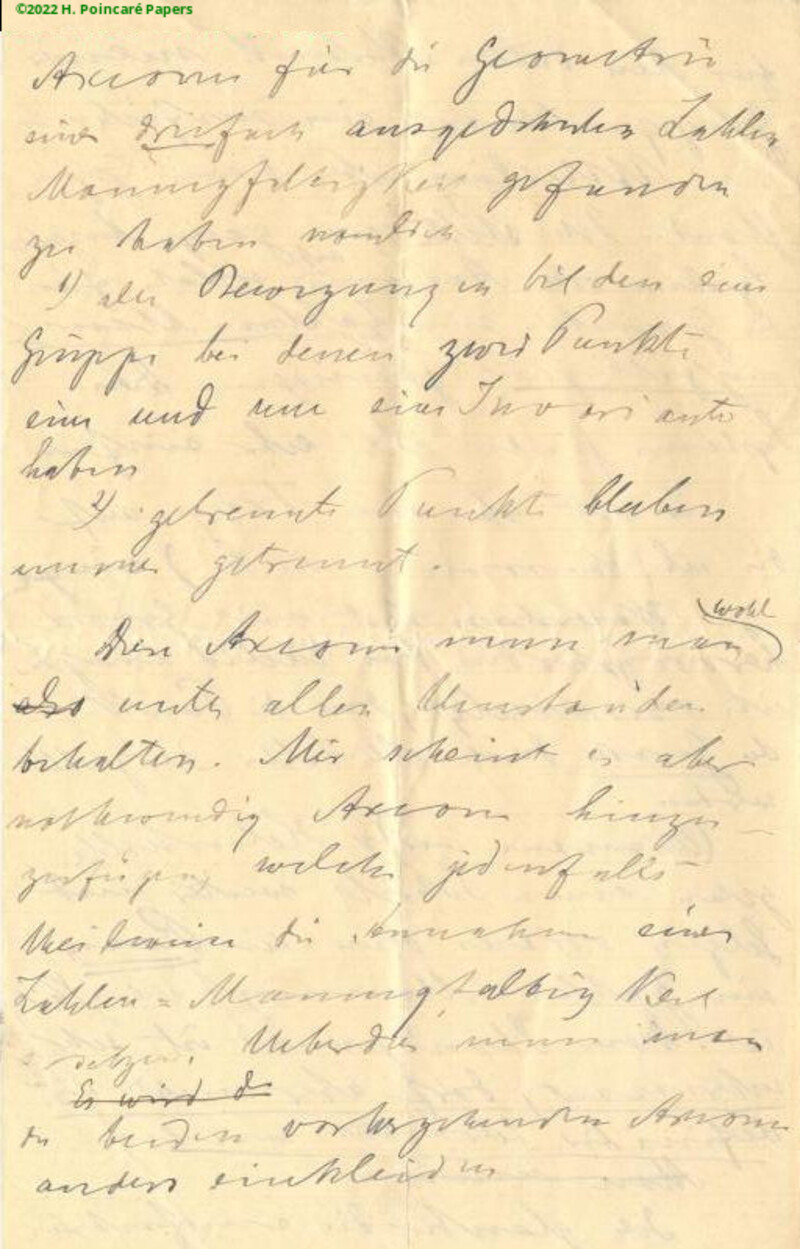 ©2022 H. Poincaré Papers
Axiome für die Geometrie
einer dreifach ausgedehnten Zahlen
Mannigfaltigkeit gefunden
zu haben nämlich
1) alle Bewegungen bilden eine
Gruppe bei denen zwei Punkte
eine und nur eine Invariante
haben
2) getrennte Punkte bleiben
immer getrennt.
wohl
Diese Axiome muss man
also unter allen Umständen
behalten. Mir scheint es aber
nothwendig Axiome hinzu-
zufügen welche jedenfalls
theilweise die Annahme einer
Zahlen = Mannigfaltigkeit
setzen. Ueberdies muss man
Es wird d
die beiden vorhergehenden Axiome
anders einkleiden